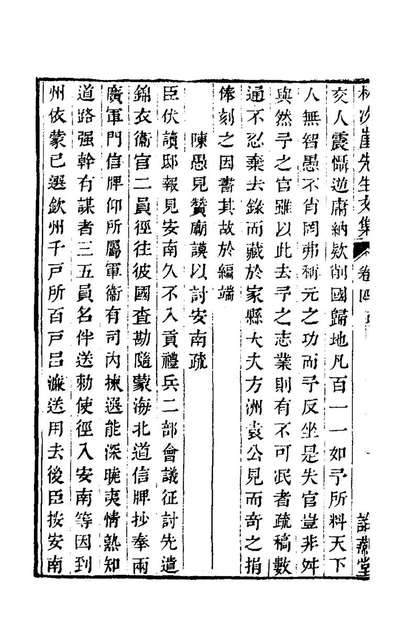 林次崖先生文集 卷四 詒燕堂
交人震慴逆庸納欵削國歸地凡百一一如予所料天下
人無智愚不肖罔弗稱元之功而予反坐是失官豈非舛
與然予之官雖以此去予之志業則有不可泯者疏稿數
通不忍棄去錄而藏於家縣大夫方洲袁公見而奇之捐
俸刻之因書其故於編端
陳愚見贊廟謨以討安南疏
臣伏讀邸報見安南久不入貢禮兵二部會議征討先遣
錦衣衞官二員徑往彼國查勘隨蒙海北道信牌抄奉兩
廣軍門信牌仰所屬軍衞有司內揀選能深曉夷情熟知
道路强幹有謀者三五員名伴送勅使徑入安南等因到
州依蒙已選欽州千戸所百戸呂濂送用去後臣按安南